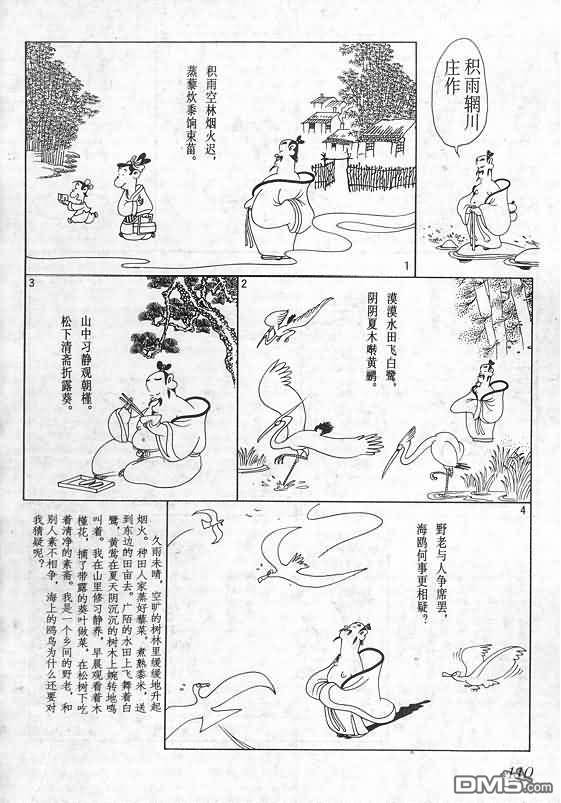 积雨辋川
庄作
积雨空林烟火迟，
蒸藜炊黍饷東菑。
1
2
漠漠水田飞白鹭，
阴阴夏木啭黄鹂。
3
山中习静观朝槿，
松下清斋折露葵。
4
野老与人争席罢，
海鸥何事更相疑？
久雨未晴，空旷的树林里缓缓地升起
烟火。种田人家蒸好藜菜，煮熟黍米，送
到东边的田亩去。广陌的水田上飞舞着白
鹭，黄莺在夏天阴沉沉的树木上婉转地鸣
叫着。我在山里修习静养，早晨观看着木
槿花，摘了带露的葵叶做菜，在松树下吃
着清净的素斋。我是一个乡间的野老，和
别人素不相争，海上的鸥鸟为什么还要对
我猜疑呢？
110
DM5.com